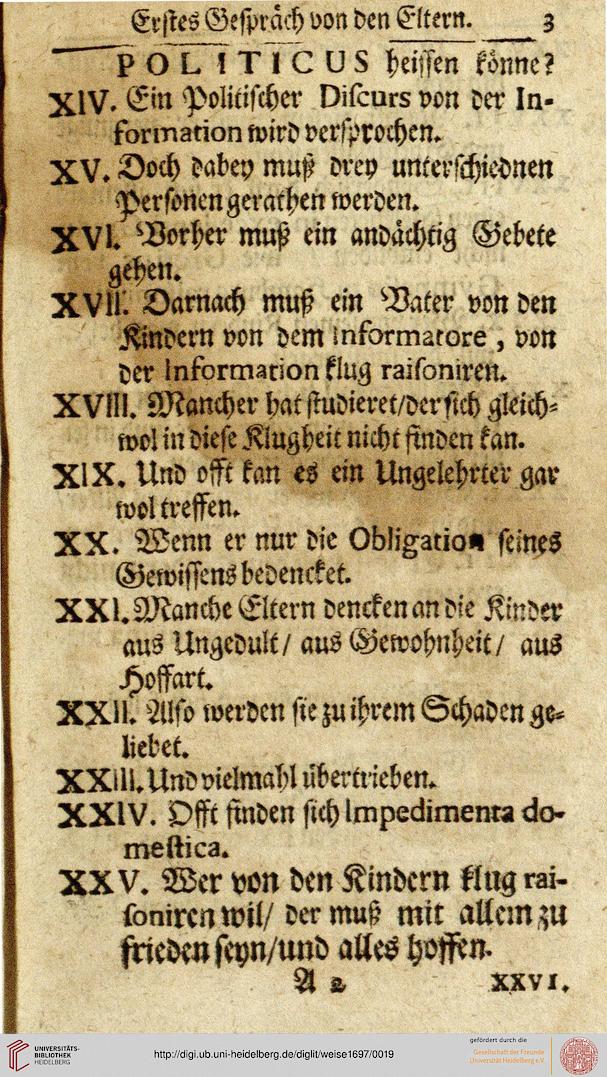 Erstes Gespräch von den Eltern. 3
POLITICUS heissen könne?
XIV. Ein Politischer Discurs von der In-
formation wird versprochen.
XV. Doch dabey muß drey unterschiednen
Personen gerathen werden.
XVI. Vorher muß ein andächtig Gebete
gehen.
XVII. Darnach muß ein Vater von den
Kindern von dem Informatore, von
der Information klug raisoniren.
XVIII. Mancher hat studieret/der sich gleich-
wol in diese Klugheit nicht finden kan.
XIX. Und offt kan es ein Ungelehrter gar
wol treffen.
XX. Wenn er nur die Obligation seines
Gewissens bedencket.
XXI. Manche Eltern dencken an die Kinder
aus Ungedult/ aus Gewohnheit/ aus
Hoffart.
XXII. Also werden sie zu ihrem Schaden ge-
liebet.
XXIII. Und vielmahl übertrieben.
XXIV. Offt finden sich Impedimenta do-
mestica.
XXV. Wer von den Kindern klug rai-
soniren wil/ der muß mit allem zu
frieden seyn/und alles hoffen.
A 2 XXVI.
UNIVERSITÄTS-
BIBLIOTHEK
HEIDELBERG
http://digi.ub.uni-heidelberg.de/diglit/weise1697/0019
gefördert durch die
Gesellschaft der Freunde
Universität Heidelberg e.V.